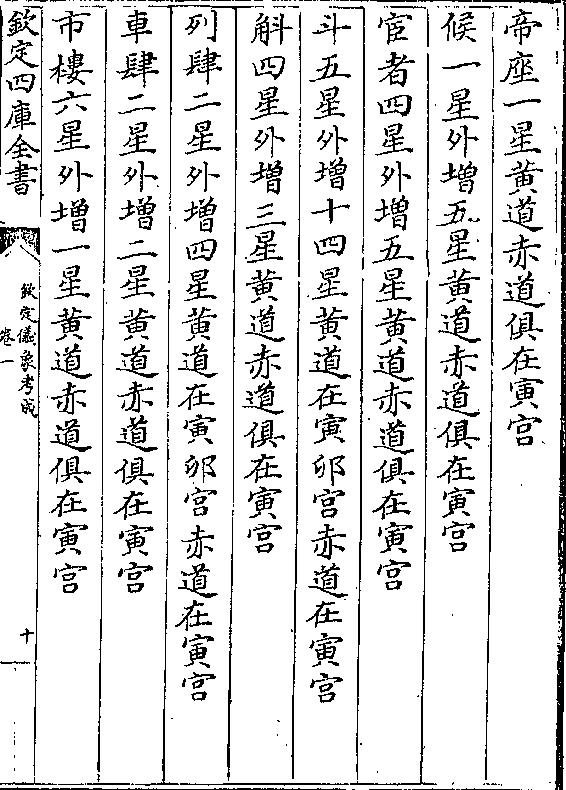 帝座一星黄道赤道俱在寅宫
候一星外增五星黄道赤道俱在寅宫
宦者四星外增五星黄道赤道俱在寅宫
斗五星外增十四星黄道在寅卯宫赤道在寅宫
斛四星外增三星黄道赤道俱在寅宫
列肆二星外增四星黄道在寅卯宫赤道在寅宫
車肆二星外增二星黄道赤道俱在寅宫
市樓六星外增一星黄道赤道俱在寅宫
欽定四庫全書
欽定儀象考成
卷一
十